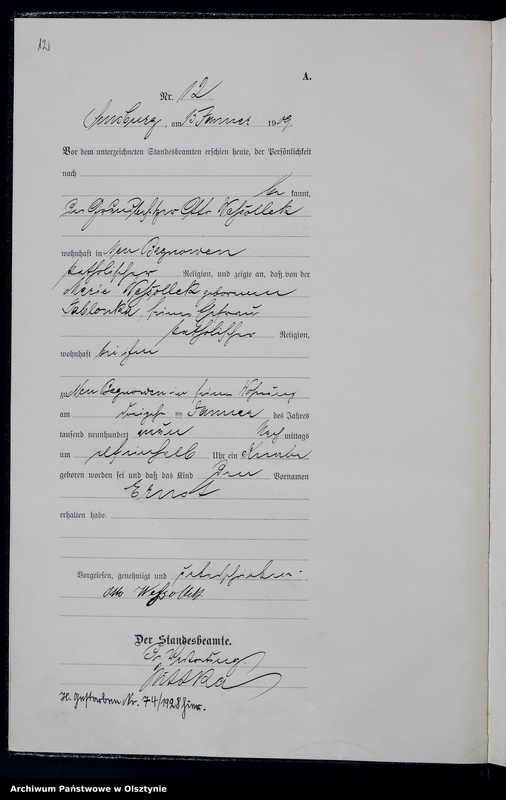 12
A.
Nr. 12
Sensburg, am 15 Januar 1909.
Vor dem unterzeichneten Standesbeamten erschien heute, der Persönlichkeit
nach
be kannt,
der Grundbesitzer Otto Wessollek
wohnhaft in Neu Bagnowen
katholischer Religion, und zeigte an, daß von der
Marie Wessollek geborenen
Jablonka, seiner Ehefrau
katholischer Religion,
wohnhaft bei ihm
zu Neu Bagnowen in seiner Wohnung
am im Januar des Jahres
tausend neunhundert neun Nach mittags
um Uhr ein Knabe
geboren worden sei und daß das Kind den Vornamen
Ernst
erhalten habe.
Vorgelesen, genehmigt und unterschrieben
Otto Wessollek
Der Standesbeamte.
In Vertretung.
H. Gestorben Nr. 74/1928 hier.
Archiwum Państwowe w Olsztynie